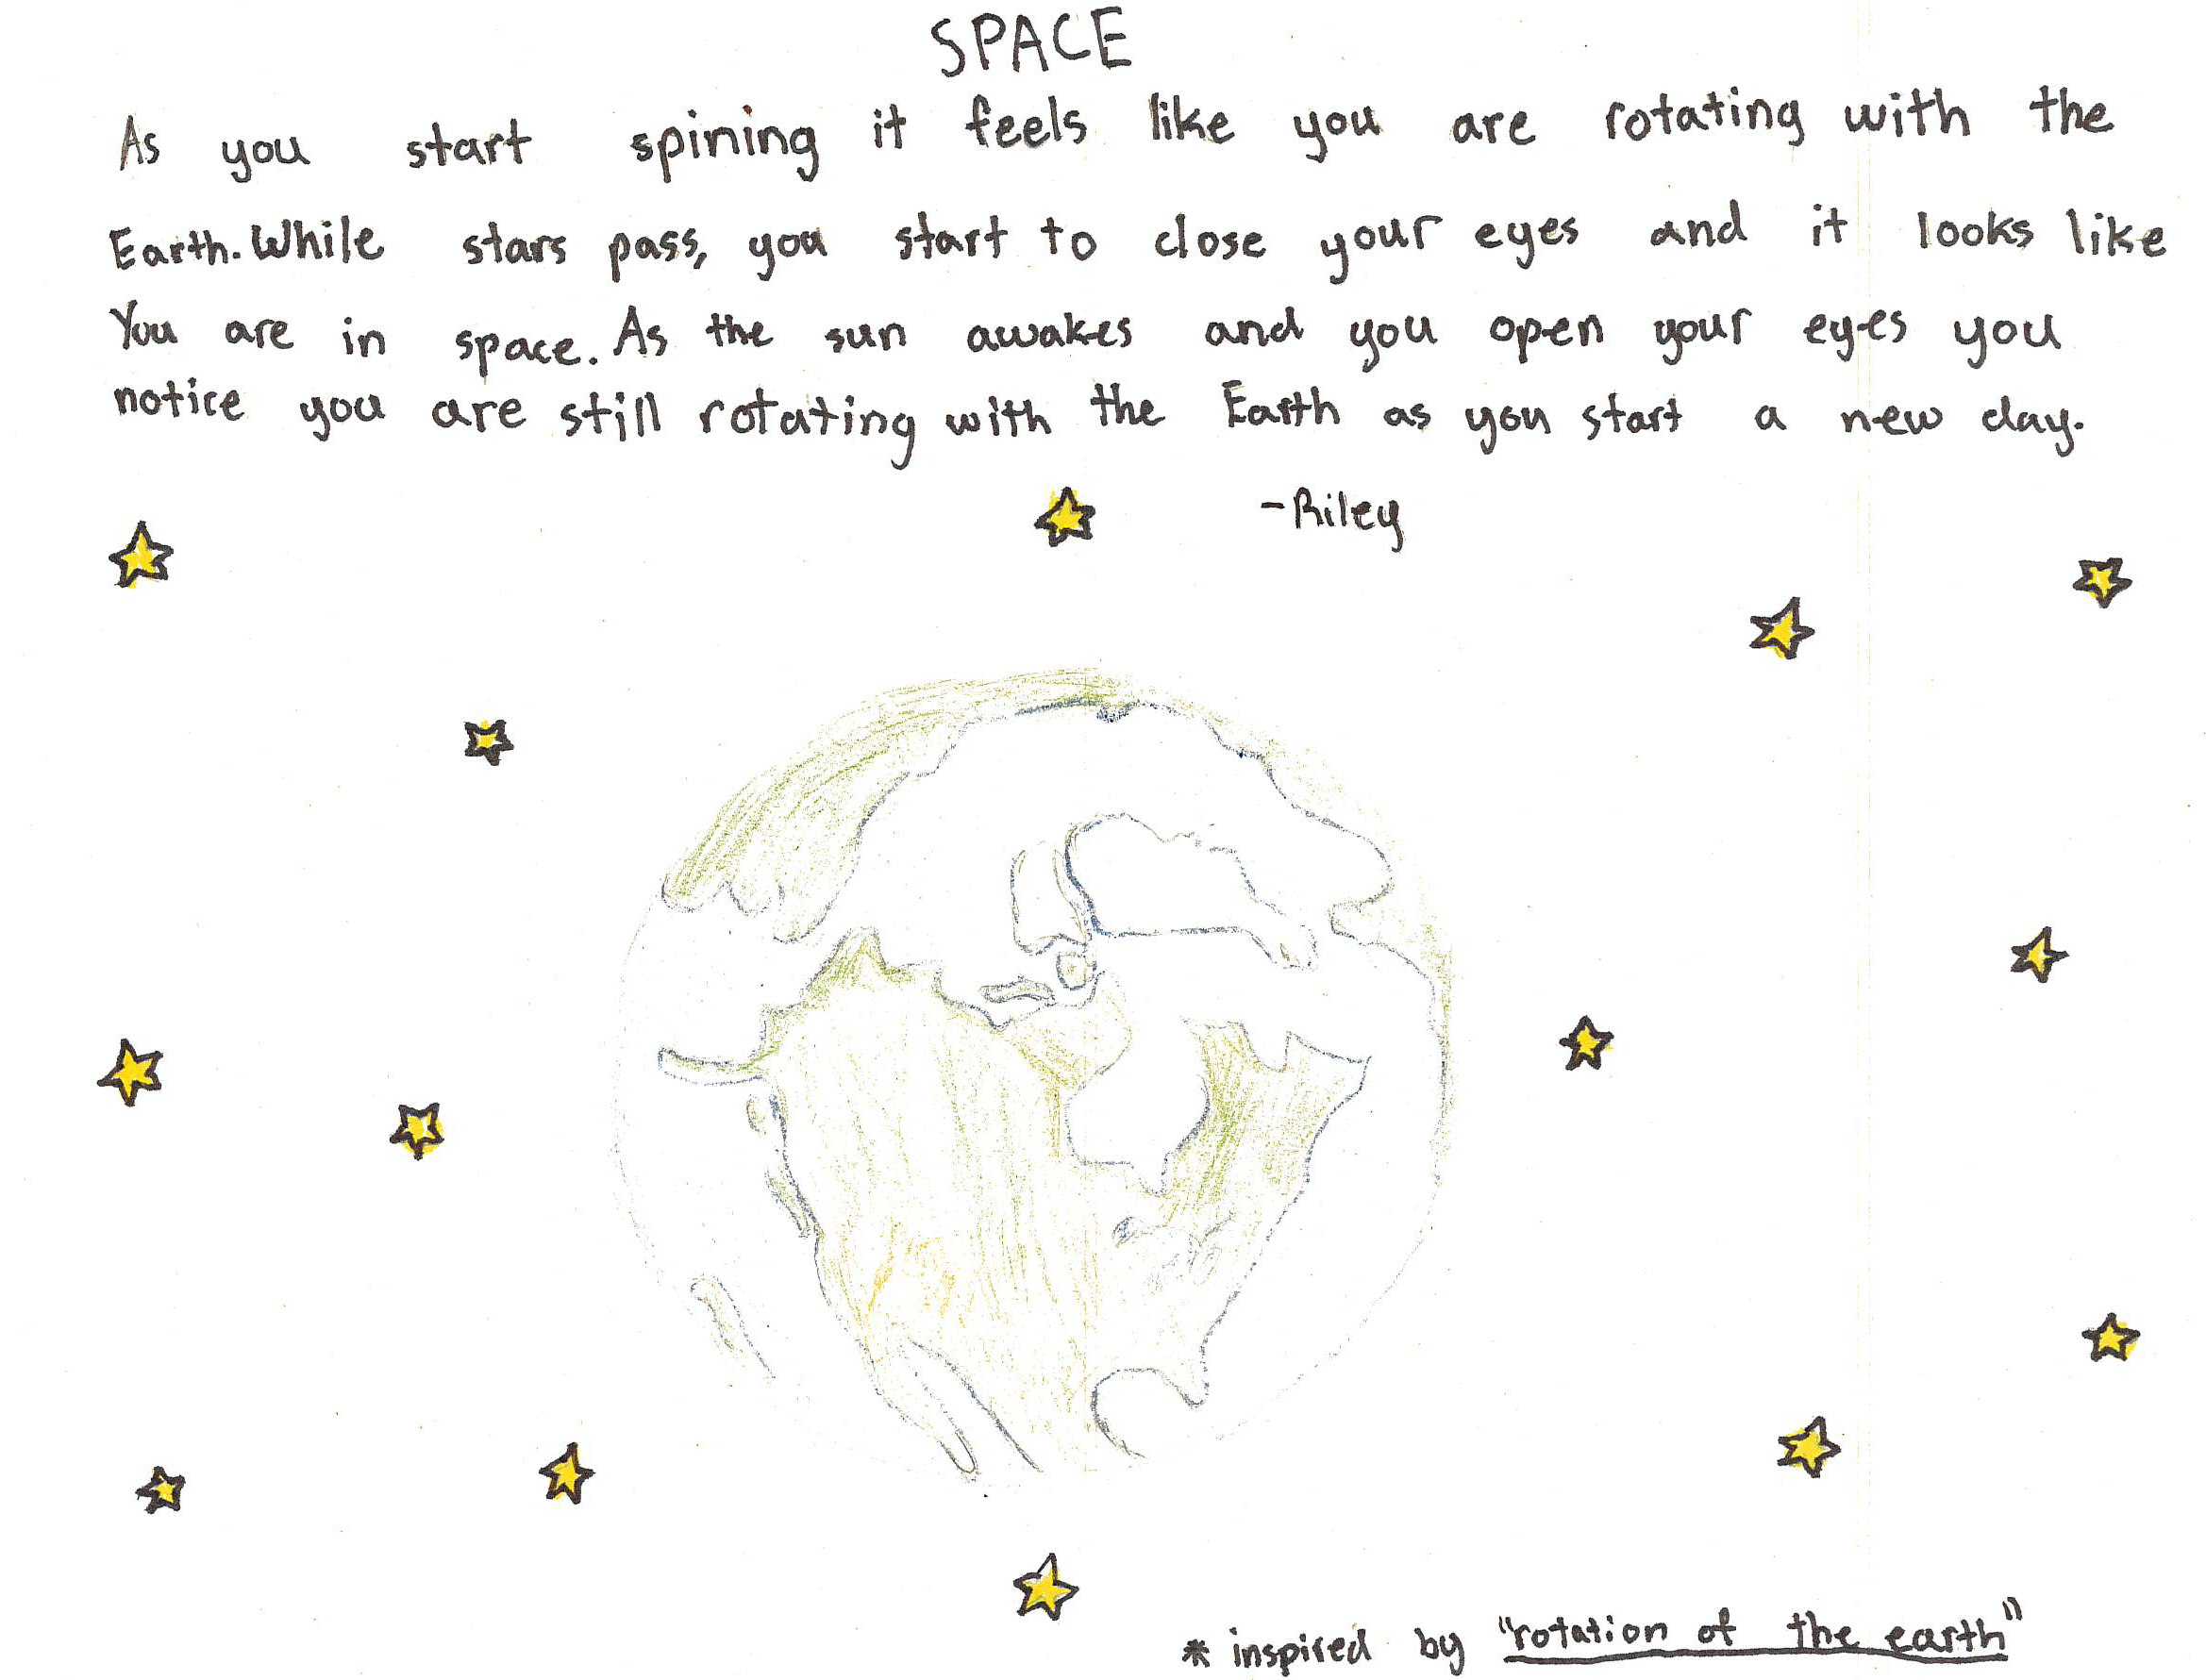 SPACE
As you start spining it feels like you are rotating with the
Earth. While stars pass, you start to close your eyes and it looks like
You are in space. As the sun awakes and you open your eyes you
notice you are still rotating with the Earth as you start a new day.
-Riley
* inspired by "rotation of the earth"